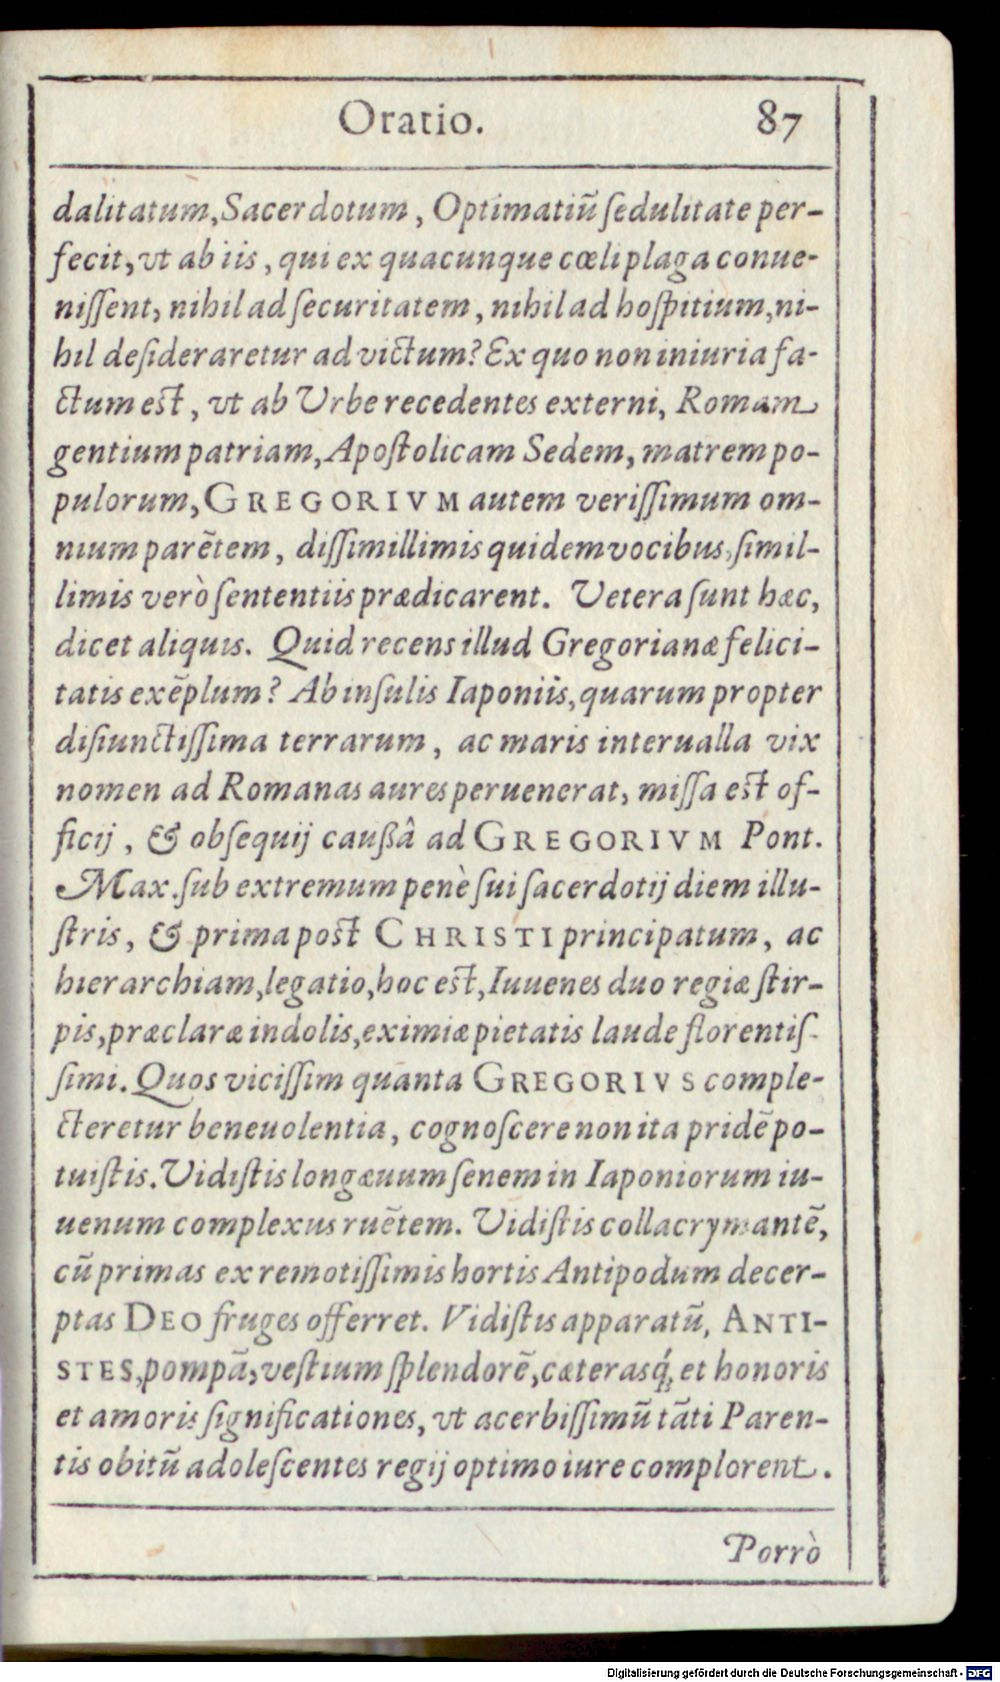 Oratio. 87
dalitatum, Sacerdotum, Optimatiũ ſedulitate per-
fecit, vt ab iis, qui ex quacunque cœli plaga conue-
niſſent, nihil ad ſecuritatem, nihil ad hoſpitium, ni-
hil deſideraretur ad victum? Ex quo non iniuria fa-
ctum eſt, vt ab Vrbe recedentes externi, Romam
gentium patriam, Apoſtolicam Sedem, matrem po-
pulorum, GREGORIVM autem veriſſimum om-
nium parẽtem, diſſimillimis quidem vocibus, ſimil-
limis verò ſententiis prædicarent. Vetera ſunt hæc,
dicet aliquis. Quid recens illud Gregorianæ felici-
tatis exẽplum? Ab inſulis Iaponiis, quarum propter
diſiunctiſſima terrarum, ac maris interualla vix
nomen ad Romanas aures peruenerat, miſſa eſt of-
ficij, & obſequij cauſſâ ad GREGORIVM Pont.
Max. ſub extremum penè ſui ſacerdotij diem illu-
ſtris, & prima poſt CHRISTI principatum, ac
hierarchiam, legatio, hoc eſt, Iuuenes duo regiæ ſtir-
pis, præclaræ indolis, eximiæ pietatis laude florentiſ-
ſimi. Quos viciſſim quanta GREGORIVS comple-
cteretur beneuolentia, cognoſcere non ita pridẽ po-
tuiſtis. Vidiſtis longæuum ſenem in Iaponiorum iu-
uenum complexus ruẽtem. Vidiſtis collacrymantẽ,
cũ primas ex remotiſſimis hortis Antipodum decer-
ptas DEO fruges offerret. Vidiſtis apparatũ, ANTI-
STES, pompã, veſtium ſplendorẽ, cæterasq́; et honoris
et amoris ſignificationes, vt acerbiſſimũ tãti Paren-
tis obitũ adoleſcentes regij optimo iure complorent.
Porrò
Digitalisierung gefördert durch die Deutsche Forschungsgemeinschaft - DFG